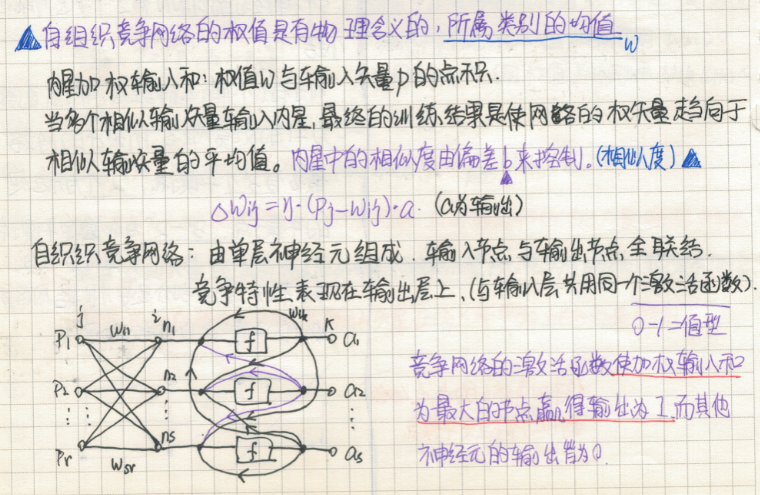 自组织竞争网络的权值是有物理含义的，所属类别的均值
w
内星加权输入和：权值W与输入矢量p的点积.
当多个相似输入矢量输入内星，最终的训练结果是使网络的权矢量趋向于
相似输入矢量的平均值。内星中的相似度由偏差b来控制。(相似度)
△Wij=η·(Pj-Wij)·a. (a为输出)
自组织竞争网络：由单层神经元组成．输入节点与输出节点全联结.
竞争特性表现在输出层上、(与输入层共用同一个激活函数).
0-1二值型
竞争网络的激活函数使加权输入和
为最大的节点赢得输出为1,而其他
神经元的输出皆为0.
j i k
P1 W11 n1 f Wik a1
P2 n2 f a2
Pr Wsr ns f as